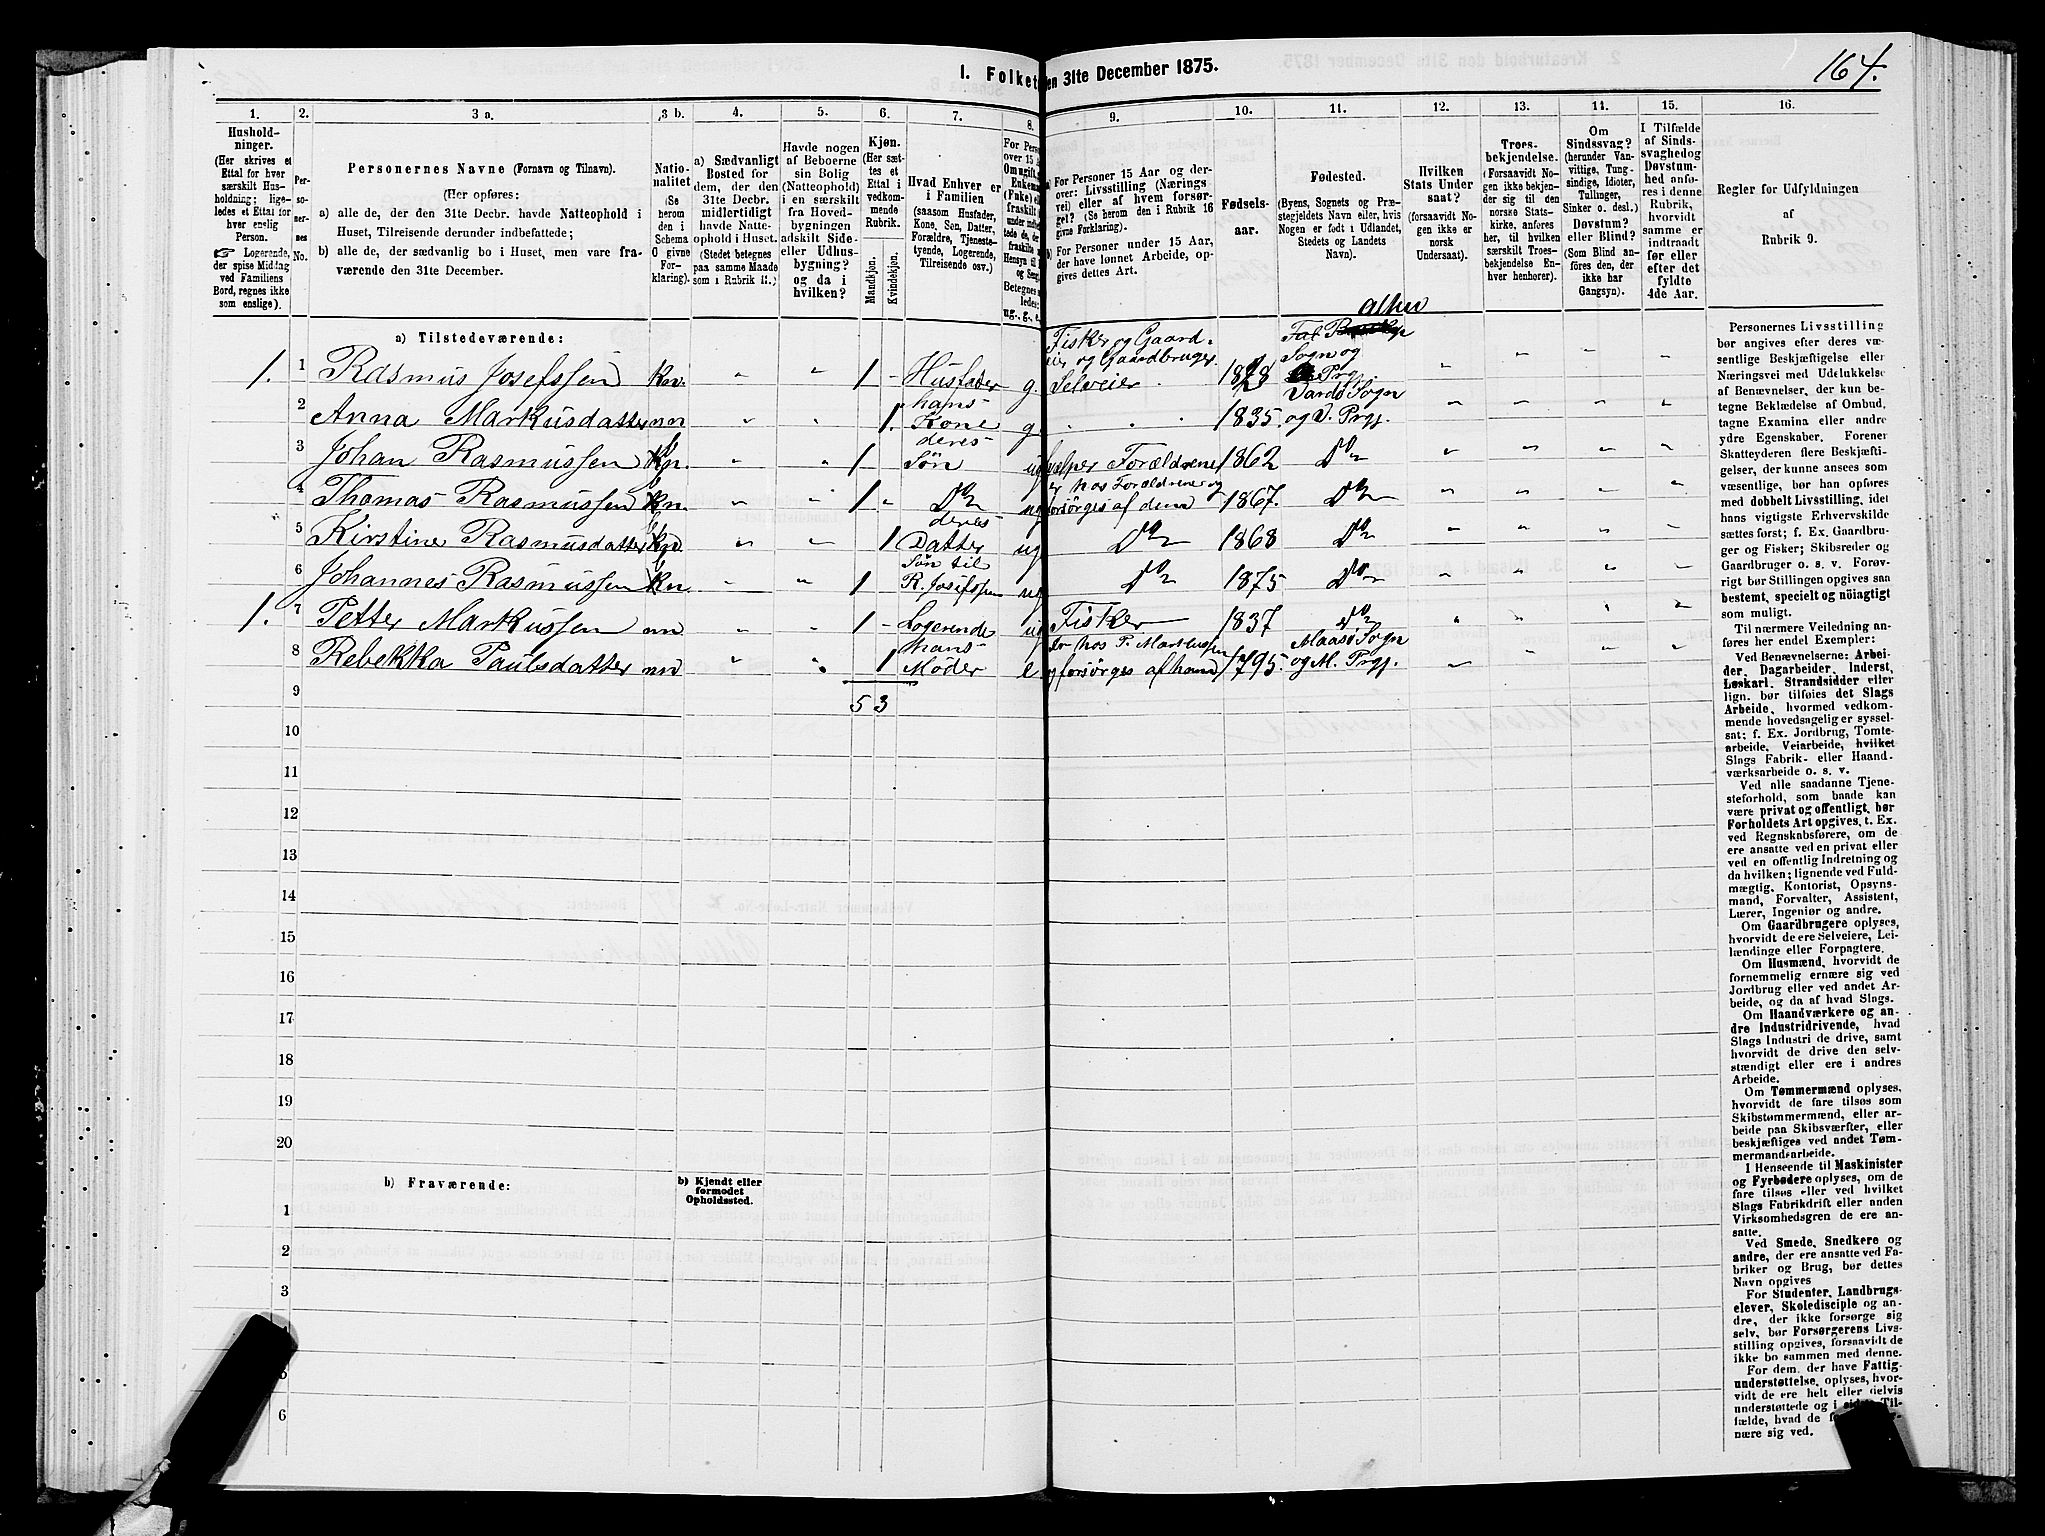 164.
I. Folket
en 31te December 1875.
1.
2.
3 a.
3 b.
4.
5.
6.
7.
8.
9.
10.
11.
12.
13.
14.
15.
16.
Hushold-
ninger.
(Her skrives et
Ettal for hver
særskilt Hus-
holdning; lige-
ledes et Ettal for
hver enslig
Person.
☞ Logerende,
der spise Middag
ved Familiens
Bord, regnes ikke
som enslige).
Per-
so-
ner-
nes
No.
Personernes Navne (Fornavn og Tilnavn).
(Her opføres:
a) alle de, der den 31te Decbr. havde Natteophold i
Huset, Tilreisende derunder indbefattede;
b) alle de, der sædvanlig bo i Huset, men vare fra-
værende den 31te December.
Natio-
nalitet
(Se
herom
den i
Schema
O givne
For-
klaring).
a) Sædvanligt
Bosted for
dem, der den
31te Decbr.
midlertidigt
havde Natte-
ophold i Huset.
(Stedet betegnes
paa samme Maade
som i Rubrik 11.)
Havde nogen
af Beboerne
sin Bolig
(Natteophold)
i en særskilt
fra Hoved-
bygningen
adskilt Side-
eller Udhus-
bygning?
og da i
hvilken?
Kjøn.
(Her sæt-
tes et
Ettal i
vedkom-
mende
Rubrik.
Mandkjøn.
Kvindekjøn.
Hvad Enhver er
i Familien
(saasom Husfader,
Kone, Søn, Datter,
Forældre, Tjeneste-
tyende, Logerende,
Tilreisende osv.)
For Pers
over 15 A
Om ugift,
Enkema
(Fnke) el
fraskilt
Hensyn til
og Seng
Betegnes
ledes:
ug., g., e.
a) For Personer 15 Aar og der-
over: Livsstilling (Nærings-
vei) eller af hvem forsør-
get? (Se herom i Rubrik 16
givne Førklaring).
b) For Personer under 15 Aar,
der have lønnet Arbeide, op-
gives dettes Art.
Fødsels-
aar.
Fødested.
(Byens, Sognets og Præ-
stegjeldets Navn eller, hvis
Nogen er født i Udlandet,
Stedets og Landets
Navn).
Hvilken
Stats Under
saat?
(forsaavidt No-
gen ikke er
norsk
Undersaat).
Troes-
bekjendelse.
(Forsaavidt No-
gen ikke bekjen-
der sig til den
norske Stats-
kirke, anføres
her, til hvilken
særskilt Troes-
bekjendelse En-
hver henhører).
Om
Sindssvag?
(herunder Van-
vittige, Tung-
sindige, Idioter,
Tullinger,
Sinker o. desl.)
Døvstum?
eller Blind?
(Som Blind an-
føres den, der
ikke har
Gangsyn).
I Tilfælde
af Sinds-
svaghed og
Døvstum-
hed anfø-
res i denne
Rubrik,
hvorvidt
samme er
indtraadt
før eller
efter det
fyldte
4de Aar.
Regler for Udfyldningen
af
Rubrik 9.
a) Tilstedeværende:
1. 1 Rasmus Josefssen kn. " " 1 - Husfader g. Fisker og Gaard-
eier og Gaardbruger
Selveier
Sogn og
Prgj.
2 Anna Markusdatter nn " " 1. hans
Kone g " " 1835. Vardø Sogn
og V. Prgj. " " " "
3 Johan Rasmussen " " 1 deres
Søn ug hjælper Forældrene 1862 Do " " " "
4 Thomas Rasmussen " " 1 " Do ug er hos Forældrene og
forsørges af dem 1867. Do " " " "
5 Kirstine Rasmusdatter " " 1 deres
Datter ug Do 1868 Do " " " "
6 Johannes Rasmussen " " 1 Søn til
R. Josefssen ug Do 1875 Do " " " "
1. 7 Petter Markussen nn " " 1 - Logerende ug Fisker 1837 Do " " " "
8 Rebekka Paulsdatter nn " " 1 hans
Moder e Er hos P. Markussen
og forsørges af ham 1795. Maasø Sogn
og M. Prgj. " " " "
9 5 3
10
11
12
13
14
15
16
17
18
19
20
b) Fraværende:
b) Kjendt eller
formodet
Opholdssted.
1
2
3
4
5
6
Personernes Livsstilling
bør angives efter deres væ-
sentlige Beskjæftigelse eller
Næringsvei med Udelukkelse
af Benævnelser, der kun be-
tegne Beklædelse af Ombud,
tagne Examina eller andre
ydre Egenskaber. Forener
Skatteyderen flere Beskjæfti-
gelser, der kunne ansees som
væsentlige, bør han opføres
med dobbelt Livsstilling, idet
hans vigtigste Erhvervskilde
sættes først; f. Ex. Gaardbru-
ger og Fisker; Skibsreder og
Gaardbruger o. s. v. Forøv-
rigt bør Stillingen opgives saa
bestemt, specielt og nöiagtigt
som muligt.
Til nærmere Veiledning an-
føres her endel Exempler:
Ved Benævnelserne: Arbei-
der, Dagarbeider, Inderst,
Løskarl, Strandsidder eller
lign. bør tilføies det Slags
Arbeide, hvormed vedkom-
mende hovedsagelig er syssel-
sat; f. Ex. Jordbrug, Tomte-
arbeide, Veiarbeide, hvilket
Slags Fabrik- eller Haand-
værksarbeide o. s. v.
Ved alle saadanne Tjene-
steforhold, som baade kan
være privat og offentligt, bør
Forholdets Art opgives, t. Ex.
ved Regnskabsførere, om de
ere ansatte ved en privat eller
ved en offentlig Indretning og
da hvilken; lignende ved Fuld-
mægtig, Kontorist, Opsyns-
mand, Forvalter, Assistent,
Lærer, Ingeniør og andre.
Om Gaardbrugere oplyses,
hvorvidt de ere Selveiere, Lei-
lændinge eller Forpagtere.
Om Husmænd, hvorvidt de
fornemmelig ernære sig ved
Jordbrug eller ved andet Ar-
beide, og da af hvad Slags.
Om Haandværkere og an-
dre Industridrivende, hvad
Slags Industri de drive, samt
hvorvidt de drive den selv-
stændigt eller ere i andres
Arbeide.
Om Tømmermænd oplyses,
hvorvidt de fare tilsøs som
Skibstømmermænd, eller ar-
beide paa Skibsværfter, eller
beskjæftiges ved andet Tøm-
mermandsarbeide.
I Henseende til Maskinister
og Fyrbødere oplyses, om de
fare tilsøs eller ved hvilket
Slags Fabrikdrift eller anden
Virksomhedsgren de ere an-
satte.
Ved Smede, Snedkere og
andre, der ere ansatte ved Fa-
briker og Brug, bør dettes
Navn opgives
For Studenter, Landbrugs-
elever, Skoledisciple og an-
dre, der ikke forsørge sig
selv, bør Forsørgerens Livs-
stilling opgives, forsaavidt de
ikke bo sammen med denne.
For dem, der have Fattig-
understøttelse, oplyses, hvor-
vidt de ere helt eller delvis
understøttede og i Til-
fælde, hvad de
nære sig ved.